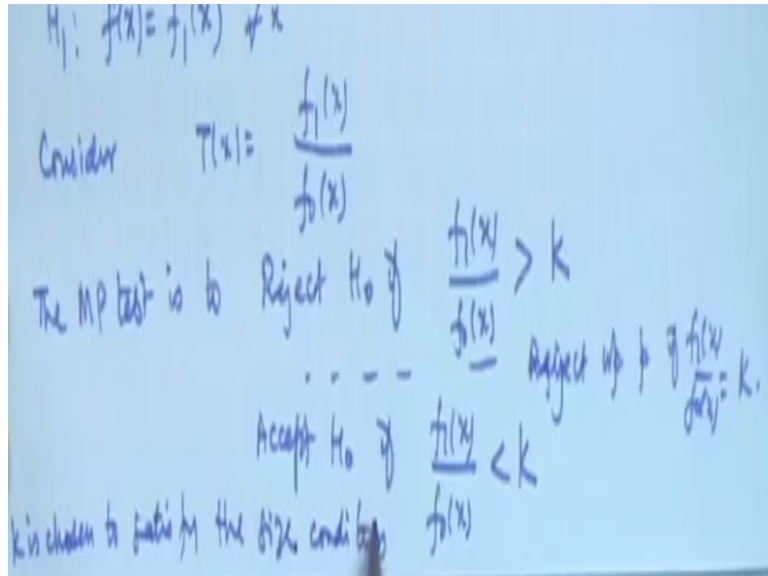 H₁: f(x) = f₁(x) ∀ x
Consider T(x) = f₁(x) / f₀(x)
The MP test is to Reject H₀ if f₁(x) / f₀(x) > k
Reject wp p if f₁(x) / f₀(x) = k.
Accept H₀ if f₁(x) / f₀(x) < k
k is chosen to satisfy the size condition